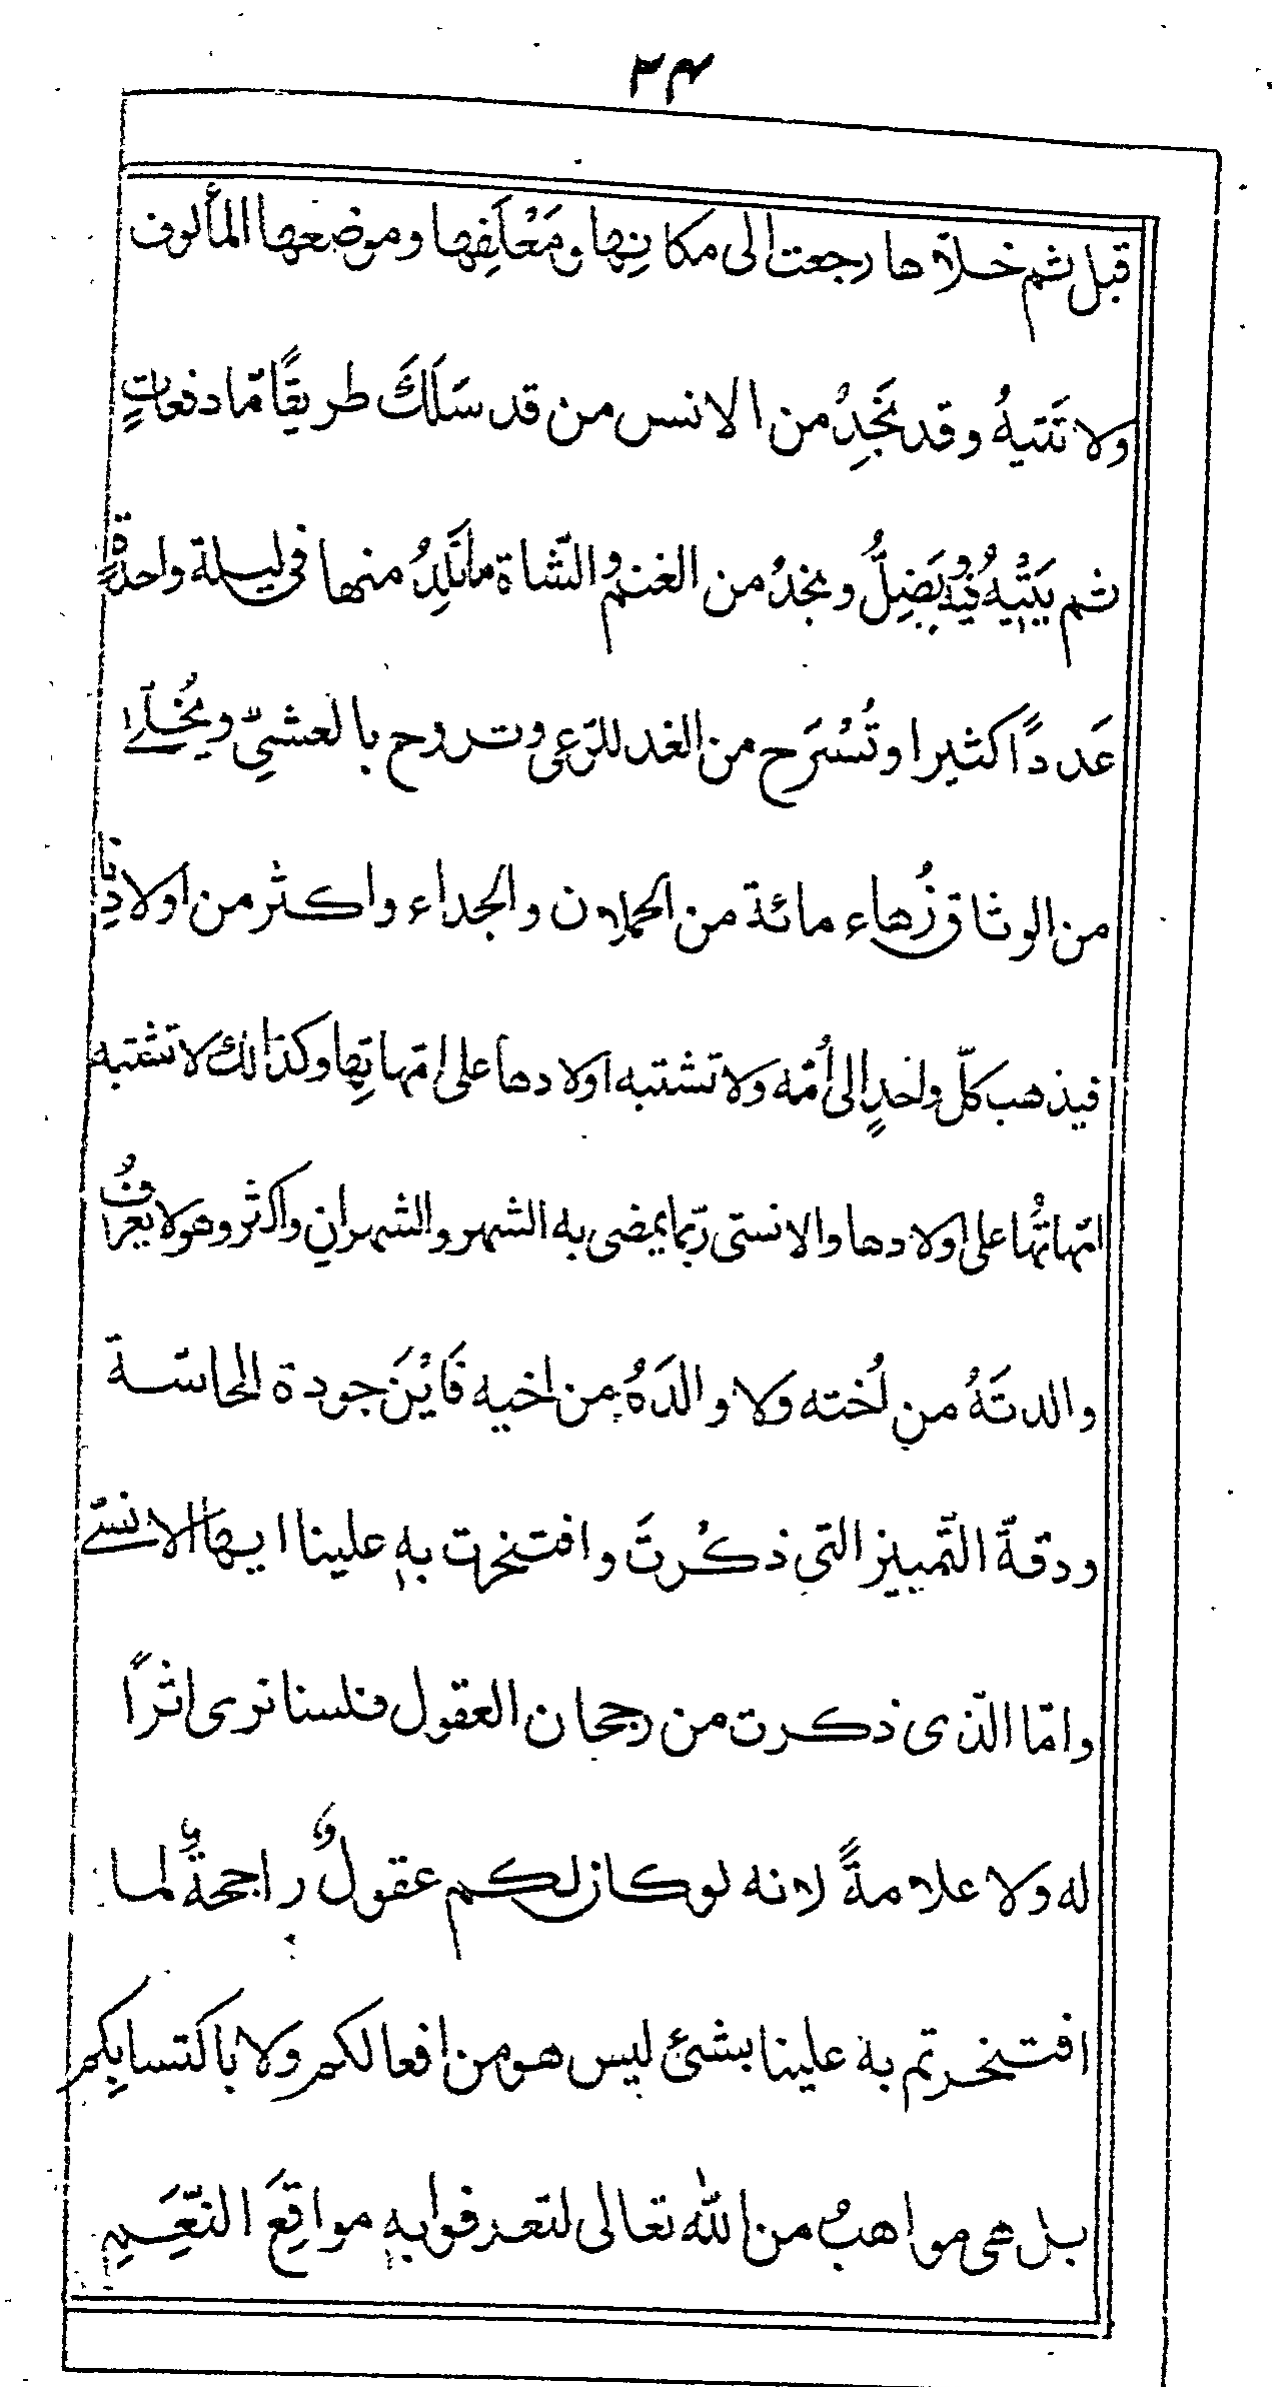 ۲۴
قبل ثم خلاّها رجعت الى مكانِها ومَعْلَفِها وموضعها المألوف
ولا تَتيهُ وقد نَجِدُ من الانس من قد سَلَكَ طريقًا مّا دفعاتٍ
ثم يَتِيْهُ فيه ويَضِلُّ ونجدُ من الغنم والشّاة ما تَلِدُ منها فى ليلة واحدةٍ
عَددًا كثيرا وتُسْرَح من الغد للرّعى وتروح بالعشيِّ ويُخلّے
من الوثاق زُهاء مائة من الحملان والجداء واكثر من اولادِنا
فيذهب كلّ واحدٍ الى أُمّه ولا تشتبه اولادها على امّهاتِها وكذالك لا تشتبه
امّهاتُها على اولادها والانسىّ ربّما يمضى به الشهر والشهرانِ واكثر وهو لا يعرفُ
والدتَهُ من اُخته ولا والدَهُ من اخيه فَايْنَ جودة الحاسّة
ودقةّ التّمييز التى ذكرتَ وافتخرت بهٖ علينا ايها الانسىّ
وامّا الذّى ذكرت من رجحان العقول فلسنا نرى اثرًا
له ولا علامةً لانه لو كان لكم عقولٌ راجحةٌ لما
افتخرتم به علينا بشئ ليس هو من افعالكم ولا باكتسابِكم
بل هى مواهبُ من اللّٰه تعالى لتعرفوا بهٖ مواقِعَ النّعَِمِ